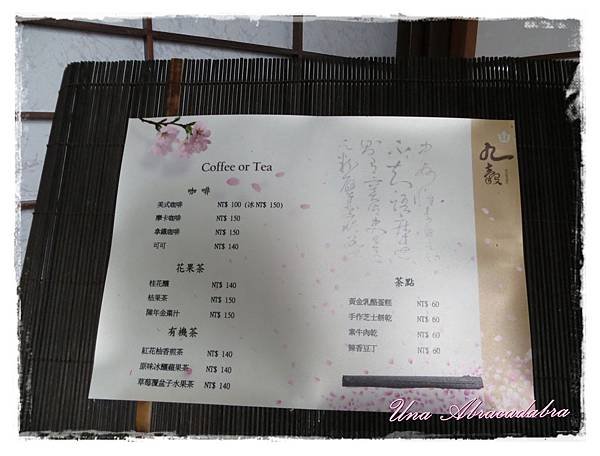 Coffee or Tea
咖啡
美式咖啡 NT$ 100 (冰 NT$ 150)
摩卡咖啡 NT$ 150
拿鐵咖啡 NT$ 150
可可 NT$ 140
花果茶
桂花釀 NT$ 140
枯果茶 NT$ 150
陳年金棗汁 NT$ 150
有機茶
紅花柚香煎茶 NT$ 140
原味冰釀蘋果茶 NT$ 140
草莓覆盆子水果茶 NT$ 140
茶點
黃金乳酪蛋糕 NT$ 60
手作芝士餅乾 NT$ 60
素牛肉乾 NT$ 60
歸香豆丁 NT$ 60
九穀
Una Abracadabra